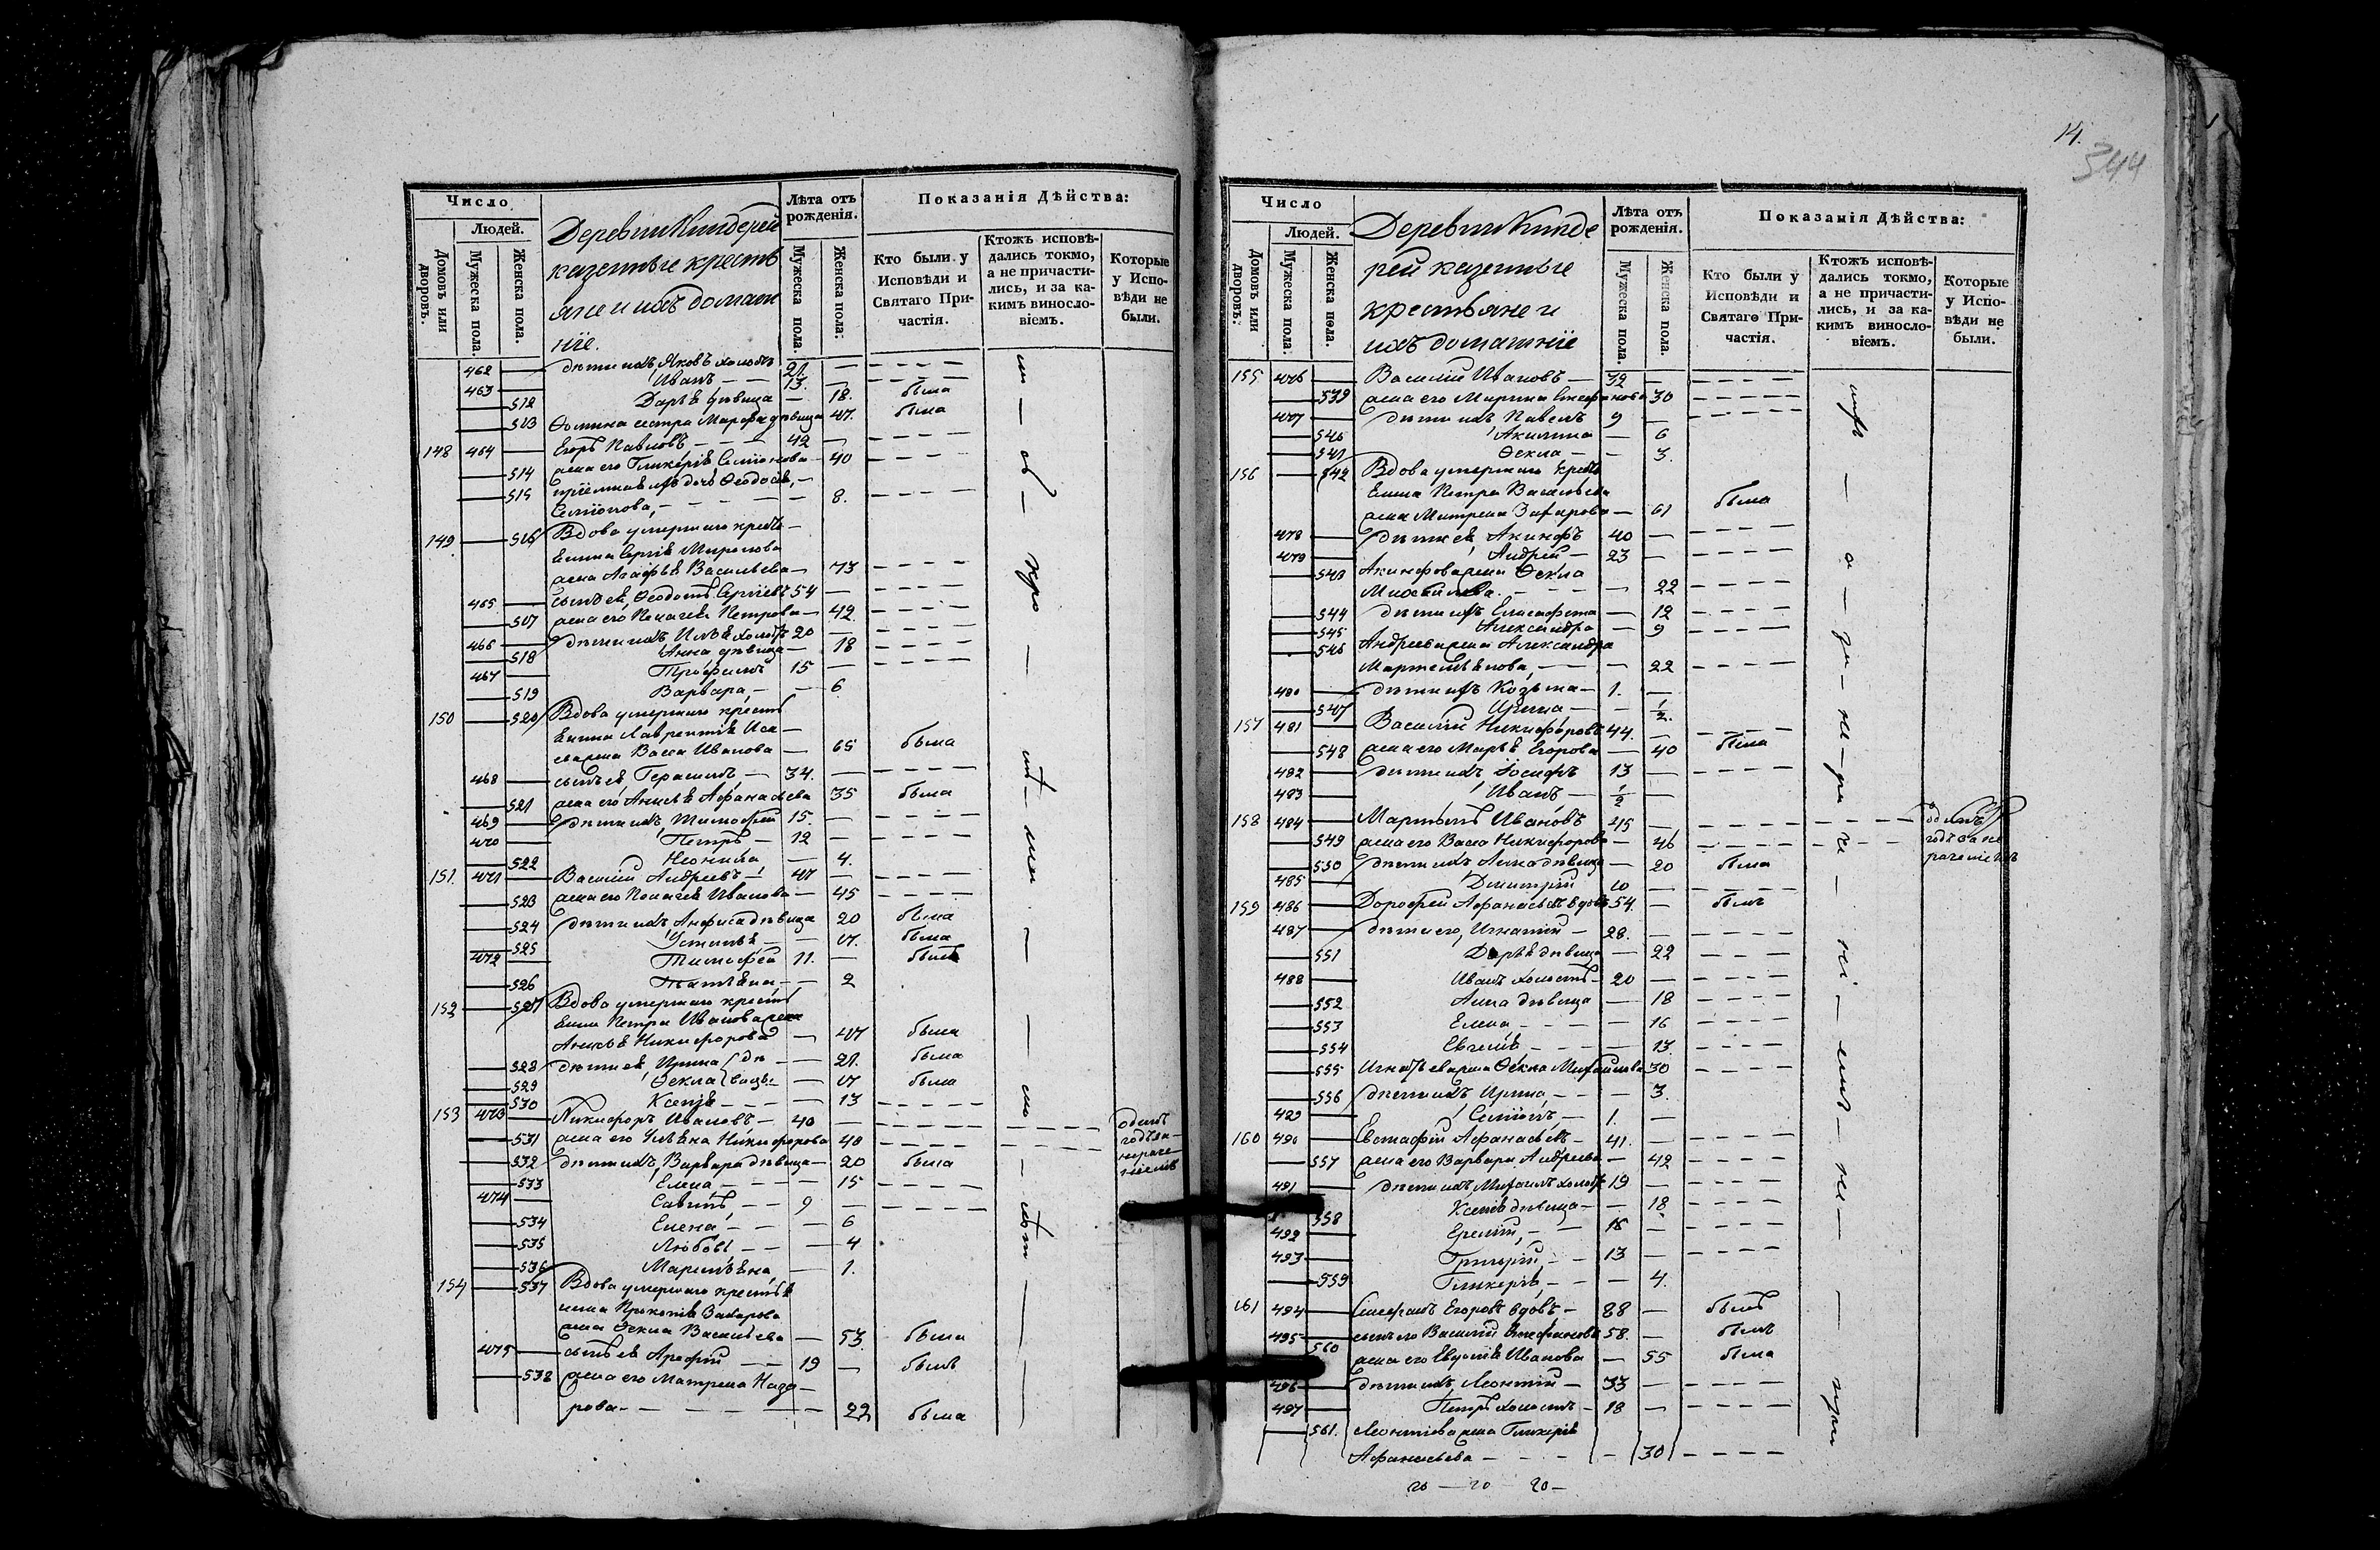 14.
344
Число
Людей.
Домовъ или дворовъ.
Мужеска пола.
Женска пола.
Деревни Киндерей
казенные кресть
яне и ихъ домаш
ніе.
Лѣта отъ рожденія.
Мужеска пола.
Женска пола:
Показанія Дѣйства:
Кто были у Исповѣди и Святаго Причастія.
Ктожъ исповѣдались токмо, а не причастились, и за какимъ винословіемъ.
Которые у Исповѣди не были.
462 дѣти ихъ, Яковъ холостъ 21.
463 Иванъ 13.
512 Дарья дѣвица 18. была
513 Ѳомина сестра Марѳа дѣвица 47. была
148 464 Егоръ Павловъ 42
514 жена его Гликерія Семіонова 40
515 дочь Ѳеодосія,
Семіонова, 8.
149. 516 Вдова умершаго кресть
янина Сергія Миронова
жена Агафья Васильева 73
465 сынъ ея, Ѳеодотъ Сергіевъ 54
517 жена его Пелагея Петрова 42.
466 дѣти ихъ Илья холостъ 20
518 Анна дѣвица 18
467 Трофимъ 15
519 Варвара, 6
150 520 Вдова умершаго кресть
янина Лаврентія Иса
ева жена Васса Иванова 65 была
468 сынъ ея, Герасимъ, 34.
521 жена его Анисья Афанасьева 35 была
469 дѣти ихъ, Тимофей 15.
470 Петръ 12
522 Неонила 4.
151. 471 Василій Андреевъ 47
523 жена его Пелагея Иванова 45
524 дѣти ихъ Анфиса дѣвица 20 была
525 Устинья 17. была
472 Тимофей 11. былъ
526 Татьяна 2
152 527 Вдова умершаго кресть
янина Петра Иванова жена
Анисья Никифорова 47 была
528 дѣти ея, Ирина дѣ 21. была
529 Ѳекла вицы 17 была
530 Ксенія 13
153 473 Никифоръ Ивановъ 40 одинъ
531 жена его Ульяна Никифорова 40 годъ за
532 дѣти ихъ, Варвара дѣвица 20 была нераче
ніемъ
533 Елена 15
474 Савинъ, 9
534 Елена 6
535 Любовь 4
536 Марѳа 1.
154 537 Вдова умершаго крестья
нина Прокопія Захарова
жена Ѳекла Васильева 53. была
475 сынъ ея Арефій 19 былъ
538 жена его Матрена Наза
рова 22 была
Число
Людей.
Домовъ или дворовъ:
Мужеска пола:
Женска пола.
Деревни Кинде
рей казенные
крестьяне и
ихъ домашніе
Лѣта отъ рожденія.
Мужеска пола.
Женска пола.
Показанія Дѣйства:
Кто были у Исповѣди и Святаго Причастія.
Ктожъ исповѣдались токмо, а не причастились, и за какимъ винословіемъ.
Которые у Исповѣди не были.
155 476 Василій Ивановъ 32
539 жена его Марина Стефанова 30
477 дѣти ихъ Павелъ 9
540 Акилина 6
541 Ѳекла 3.
156 542 Вдова умершаго кресть
янина Петра Васильева
жена Матрена Захарова 61 была
478 дѣти ея, Акинфъ 40
479 Андрей 23
543 Акинфова жена Ѳекла
Михайлова. 22
544 дѣти ихъ Елисавета 12
545 Александра 9
546 Андреева жена Александра
Мартемьянова, 22
480 дѣти ихъ Козьма 1.
547 Ирина 1/2.
157 481 Василій Никифоровъ 44.
548 жена его Марья Егорова 40 была
482 дѣти ихъ Іосифъ 13
483 Иванъ 1/2
158 484 Мартынъ Ивановъ 45 одинъ
549 жена его Васса Никифорова 46 годъ за не
раченіемъ
550 дѣти ихъ Анна дѣвица 20 была
485 Димитрій 10
159 486 Дорофей Афанасьевъ вдовъ 54. былъ
487 дѣти его, Игнатій 28.
551 Дарья дѣвица 22
488 Иванъ холостъ 20
552 Анна дѣвица 18
553 Елена 16
554 Евгенія 13.
555 Игнатьева жена Ѳекла Михайлова 30
556 дѣти ихъ Ирина 3.
489 Семіонъ 1.
160 490 Евстафій Афанасьевъ 41.
557 жена его Варвара Андреева 42
491 дѣти ихъ, Михаилъ холостъ 19
558 Ксенія дѣвица 18
492 16
493 Григорій, 13
559 Гликерія 4.
161 494 Стефанъ Егоровъ вдовъ 88 былъ
495 сынъ его Василій Стефановъ 58. былъ
560 жена его Евдокія Иванова 55 была
496 дѣти ихъ, Леонтій 33
497 Петръ холостъ 18
561. Леонтіева жена Гликерія
Афанасьева 30
20 — 20 20 —